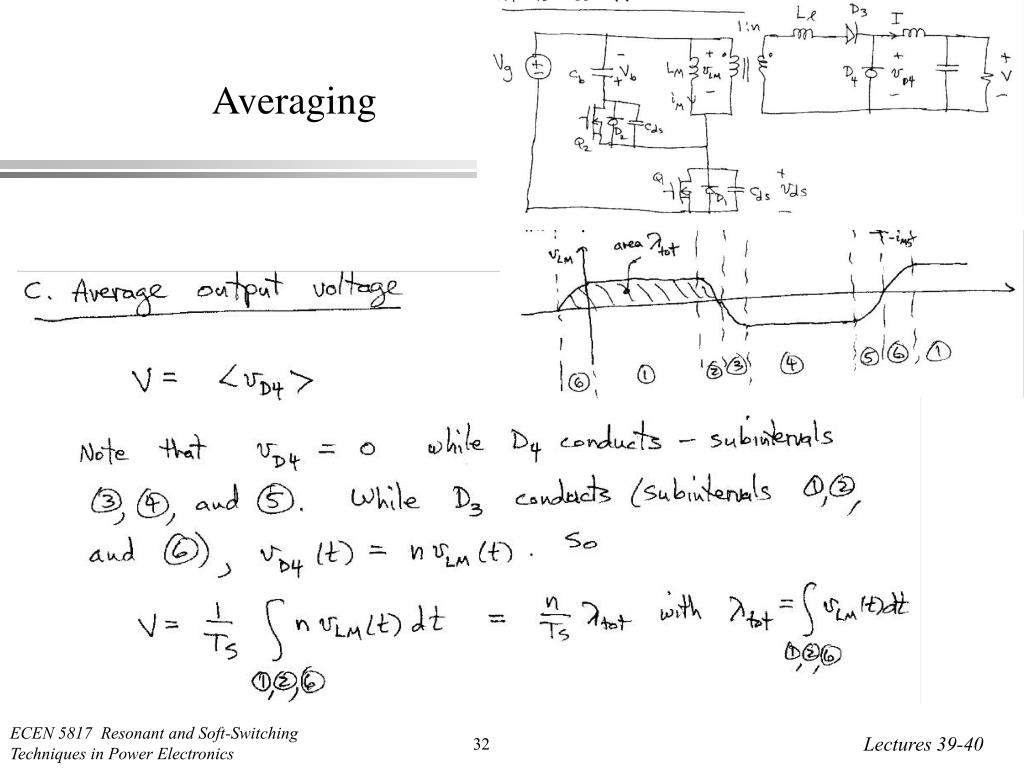 Averaging
1:n
Lℓ
D3
I
Vg
Cb
−
Vb
+
LM
+
vLM
−
iM
D4
+
vD4
−
+
V
−
Q2
D2
Cds
Q1
D1
Cds
+
vds
−
vLM
area λtot
⑥ ① ② ③ ④ ⑤ ⑥ ①
C. Average output voltage
V = <vD4>
Note that vD4 = 0 while D4 conducts – subintervals
③, ④, and ⑤. While D3 conducts (subintervals ①, ②,
and ⑥), vD4(t) = n vLM(t). So
V = 1/Ts ∫①,②,⑥ n vLM(t) dt = n/Ts λtot with λtot = ∫①,②,⑥ vLM(t)dt
ECEN 5817 Resonant and Soft-Switching
Techniques in Power Electronics
32
Lectures 39-40